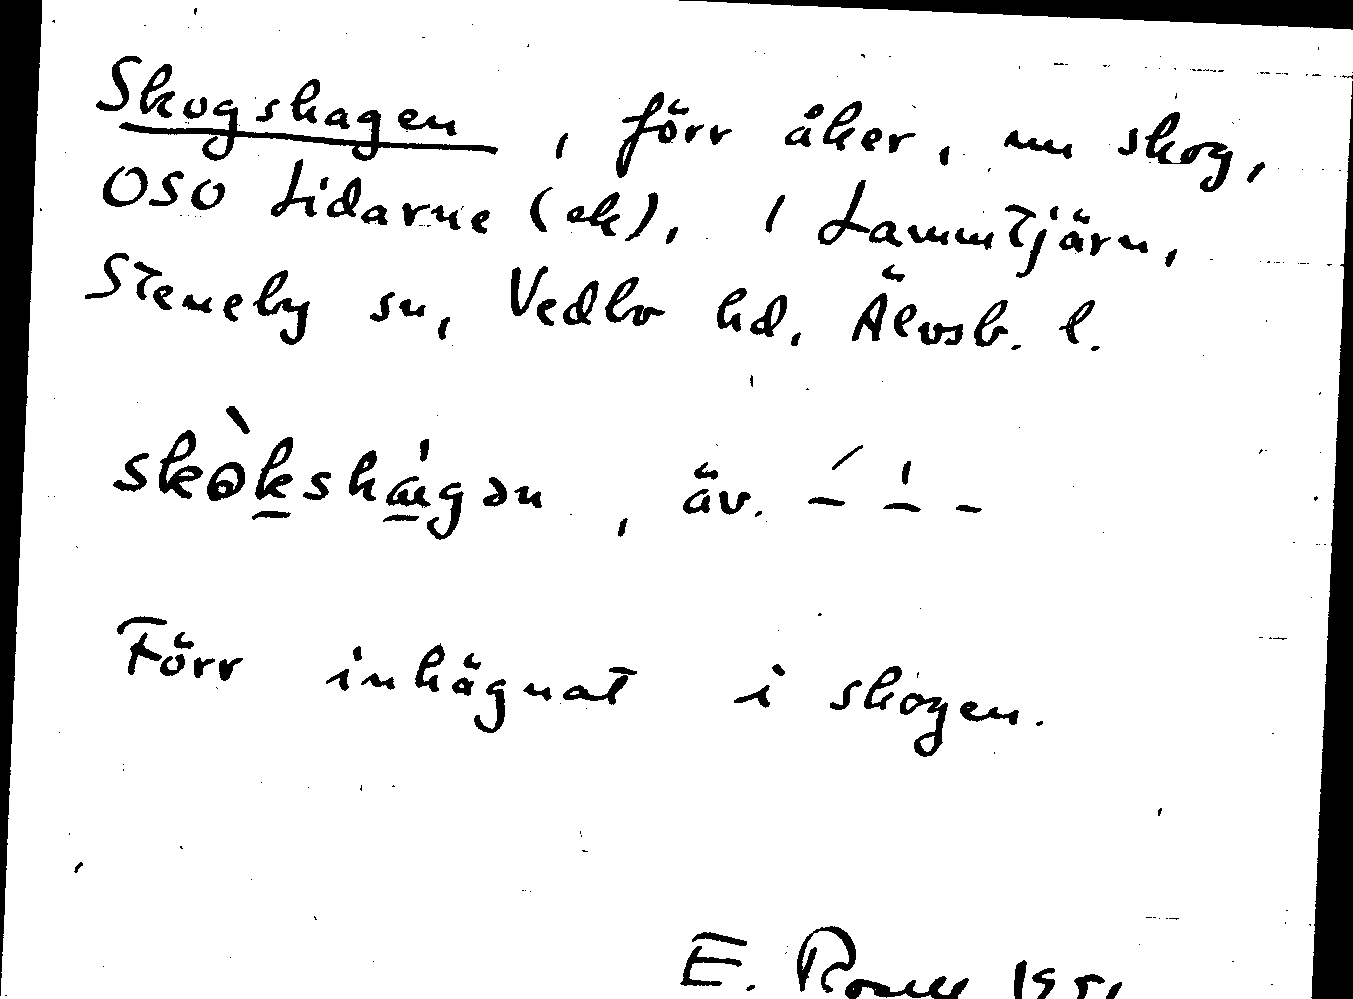 Skogshagen, förr åker, nu skog,
OSO Lidarne (ek), 1 Lammtjärn,
Steneby sn, Vedbo hd, Älvsb. l.
skòkshágən, äv. – – –
Förr inhägnat i skogen.
E.